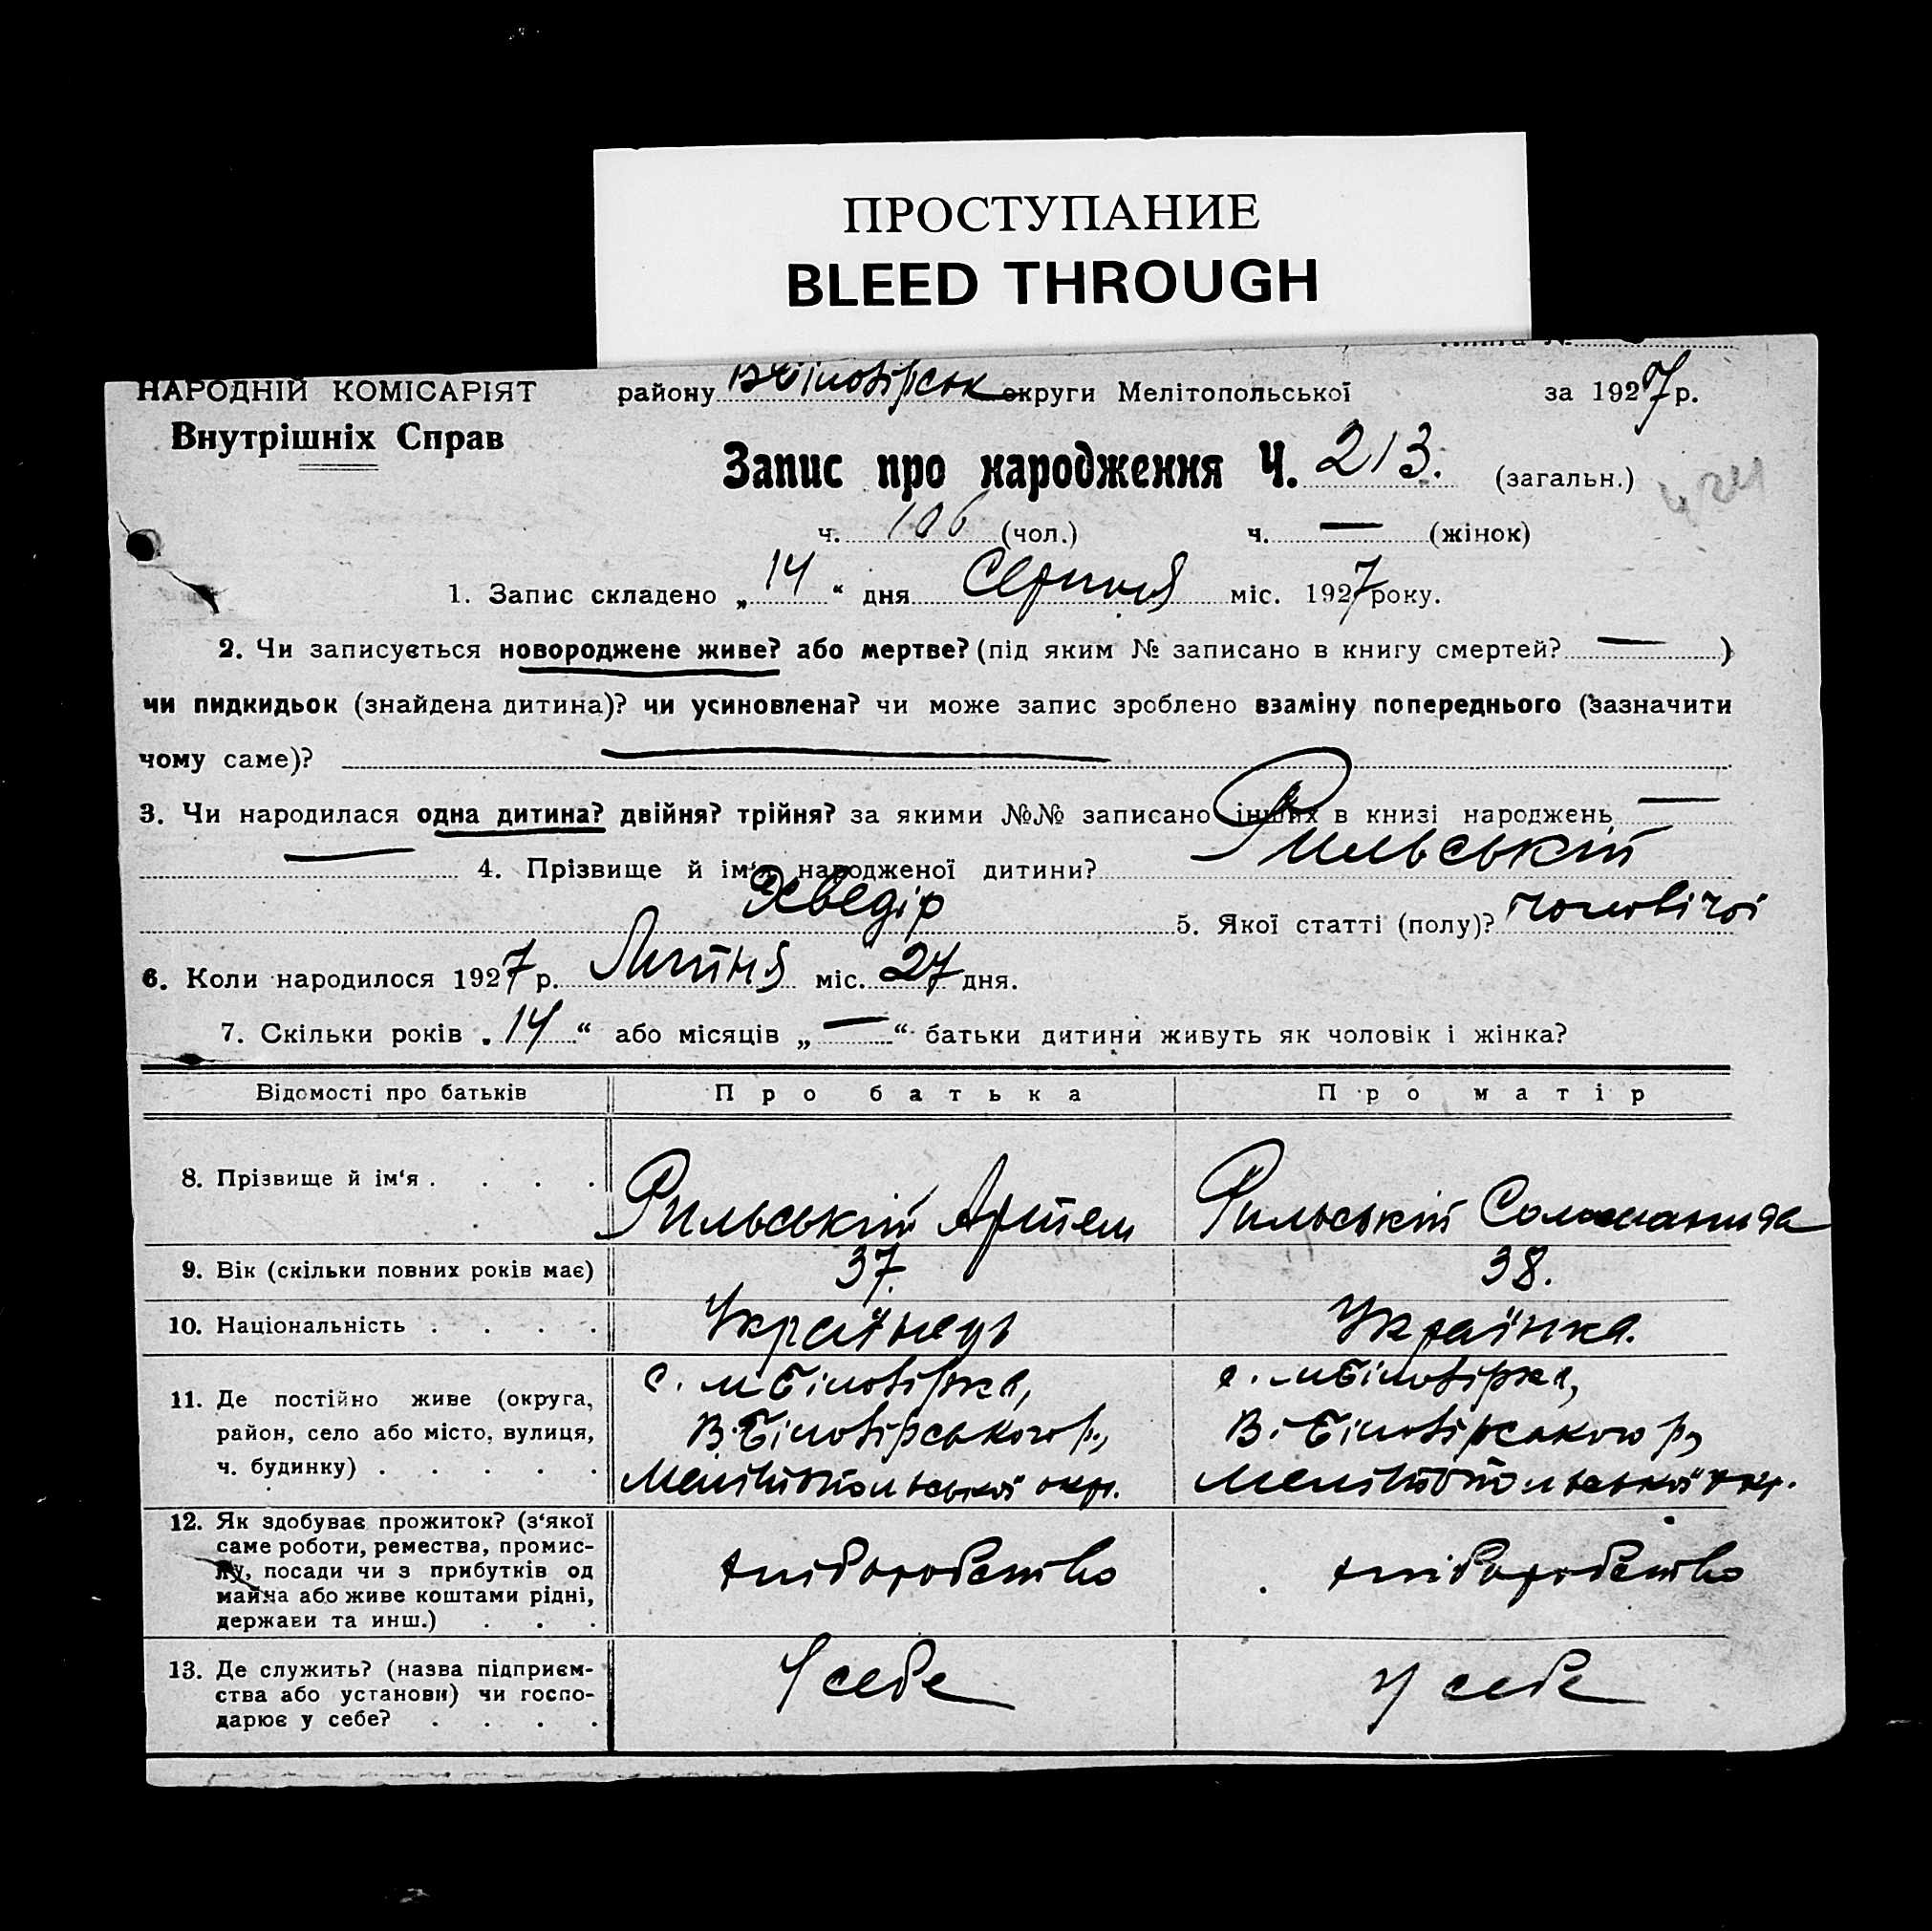 ПРОСТУПАНИЕ
BLEED THROUGH
НАРОДНІЙ КОМІСАРІЯТ району В Білозірськ округи Мелітопольської за 1927 р.
Внутрішніх Справ
Запис про народження Ч. 213. (загальн.)
ч. 106 (чол.) ч. — (жінок)
1. Запис складено „ 14 “ дня Серпня міс. 1927 року.
2. Чи записується новороджене живе? або мертве? (під яким № записано в книгу смертей? — )
чи пидкидьок (знайдена дитина)? чи усиновлена? чи може запис зроблено взаміну попереднього (зазначити
чому саме)? —
3. Чи народилася одна дитина? двійня? трійня? за якими №№ записано інших в книзі народжень —
— 4. Прізвище й ім‘я народженої дитини? Рильський
Хведір 5. Якої статті (полу)? чоловічої
6. Коли народилося 1927 р. Липня міс. 27 дня.
7. Скільки років „ 14 “ або місяців „ — “ батьки дитини живуть як чоловік і жінка?
Відомості про батьків Про батька Про матір
8. Прізвище й ім‘я . . . . Рильський Артем Рильській Соломанида
9. Вік (скільки повних років має) 37. 38.
10. Національність . . . . Українець Українка.
11. Де постійно живе (округа, с. М Білозірка, с. М Білозірка,
район, село або місто, вулиця, В. Білозірського р., В. Білозірського р.,
ч. будинку) . . . . . Мелітопольської окр. Мелітопольської окр.
12. Як здобуває прожиток? (з‘якої
саме роботи, ремества, промис-
лу, посади чи з прибутків од хліборобство хліборобство
майна або живе коштами рідні,
держави та инш.) . . .
13. Де служить? (назва підприєм-
ства або установи) чи госпо- У себе У себе
дарює у себе? . . . .